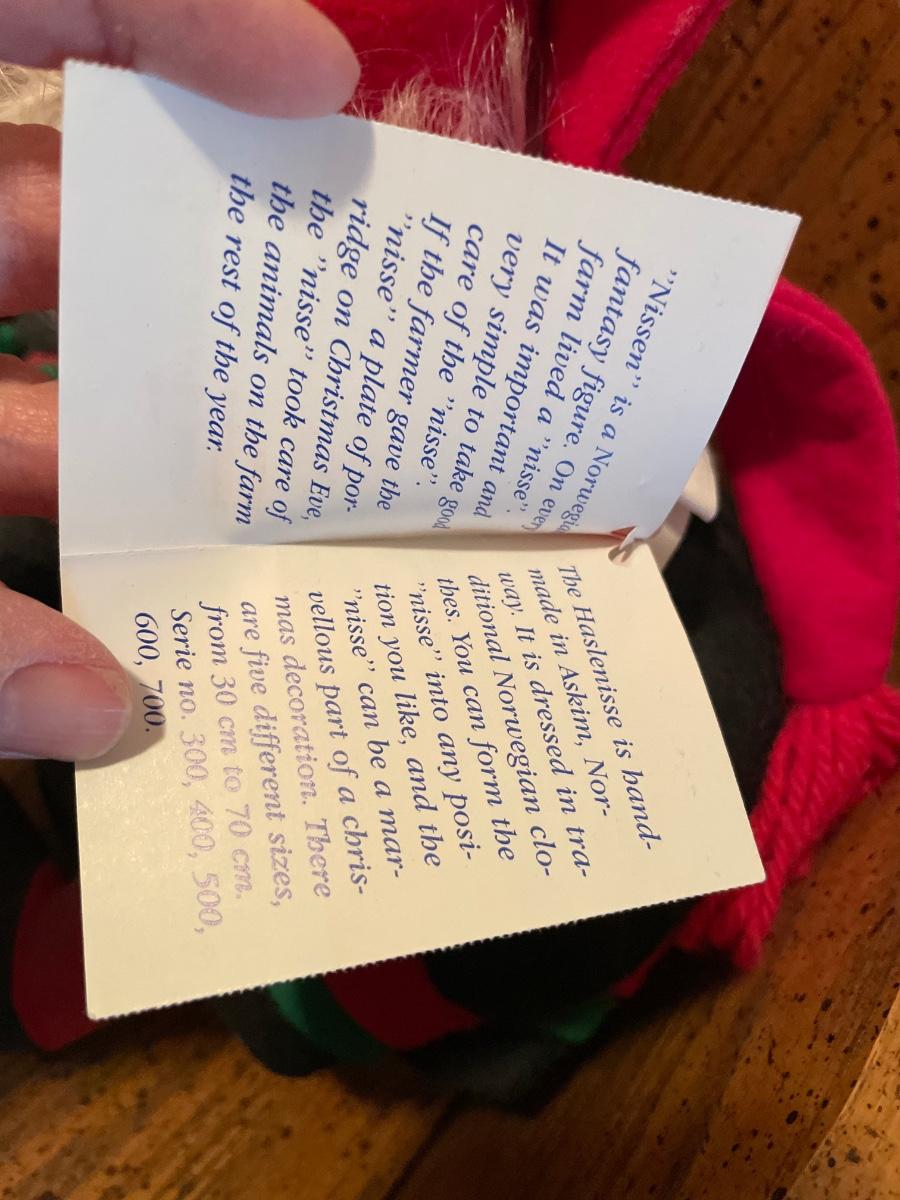 ”Nissen” is a Norwegia
fantasy figure. On every
farm lived a ”nisse”.
It was important and
very simple to take good
care of the ”nisse”.
If the farmer gave the
”nisse” a plate of por-
ridge on Christmas Eve,
the ”nisse” took care of
the animals on the farm
the rest of the year.
The Haslenisse is hand-
made in Askim, Nor-
way. It is dressed in tra-
ditional Norwegian clo-
thes. You can form the
”nisse” into any posi-
tion you like, and the
”nisse” can be a mar-
vellous part of a chris-
mas decoration. There
are five different sizes,
from 30 cm to 70 cm.
Serie no. 300, 400, 500,
600, 700.